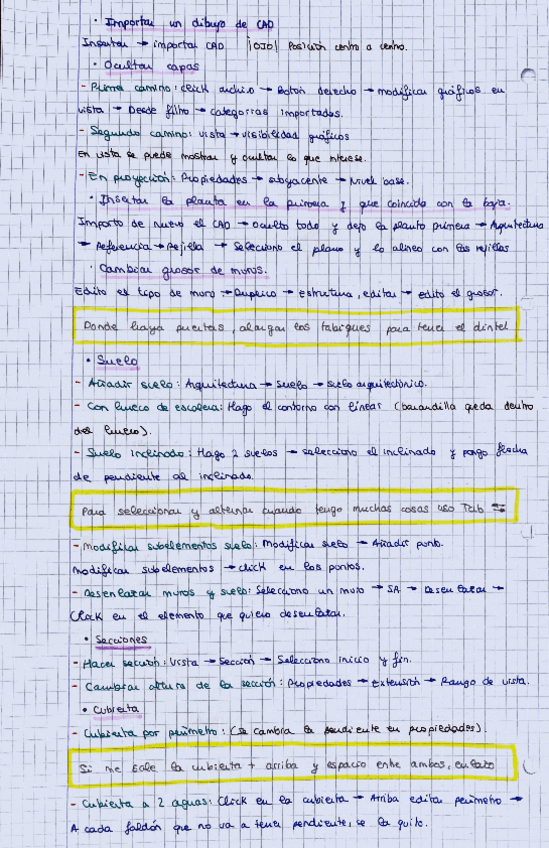 • Importar un dibujo de CAD
Insertar → importar CAD |OJO| Posición centro a centro.
• Ocultar capas
- Primer camino: click archivo → Botón derecho → modificar gráficos en
vista → Desde filtro → categorías importadas.
- Segundo camino: vista → visibilidad gráficos
En vista se puede mostrar y ocultar lo que interese.
- En proyección: Propiedades → subyacente → Nivel base.
• Insertar la planta en la primera y que coincida con la baja.
Importo de nuevo el CAD → oculto todo y dejo la planta primera → Arquitectura
→ Referencia → Rejilla → Selecciono el plano y lo alineo con las rejillas
• Cambiar grosor de muros.
Edito el tipo de muro → Duplico → Estructura, editar → edito el grosor.
Donde haya puertas, alargar los tabiques para tener el dintel
• Suelo
- Añadir suelo: Arquitectura → Suelo → Suelo arquitectónico.
- Con hueco de escalera: Hago el contorno con líneas (barandilla queda dentro
del hueco).
- Suelo inclinado: Hago 2 suelos → selecciono el inclinado y pongo flecha
de pendiente al inclinado.
Para seleccionar y alternar cuando tengo muchas cosas uso Tab ⇆
- Modificar subelementos suelo: Modificar suelo → Añadir punto.
Modificar subelementos → click en los puntos.
- Desenlazar muros y suelo: Selecciono un muro → SA → Desenlazar →
Click en el elemento que quiero desenlazar.
• Secciones
- Hacer sección: Vista → Sección → Selecciono inicio y fin.
- Cambiar altura de la sección: Propiedades → Extensión → Rango de vista.
• Cubierta
- Cubierta por perímetro: (se cambia la pendiente en propiedades).
Si me sale la cubierta + arriba y espacio entre ambos, enlazo
- Cubierta a 2 aguas: Click en la cubierta → Arriba editar perímetro →
A cada faldón que no va a tener pendiente, se la quito.